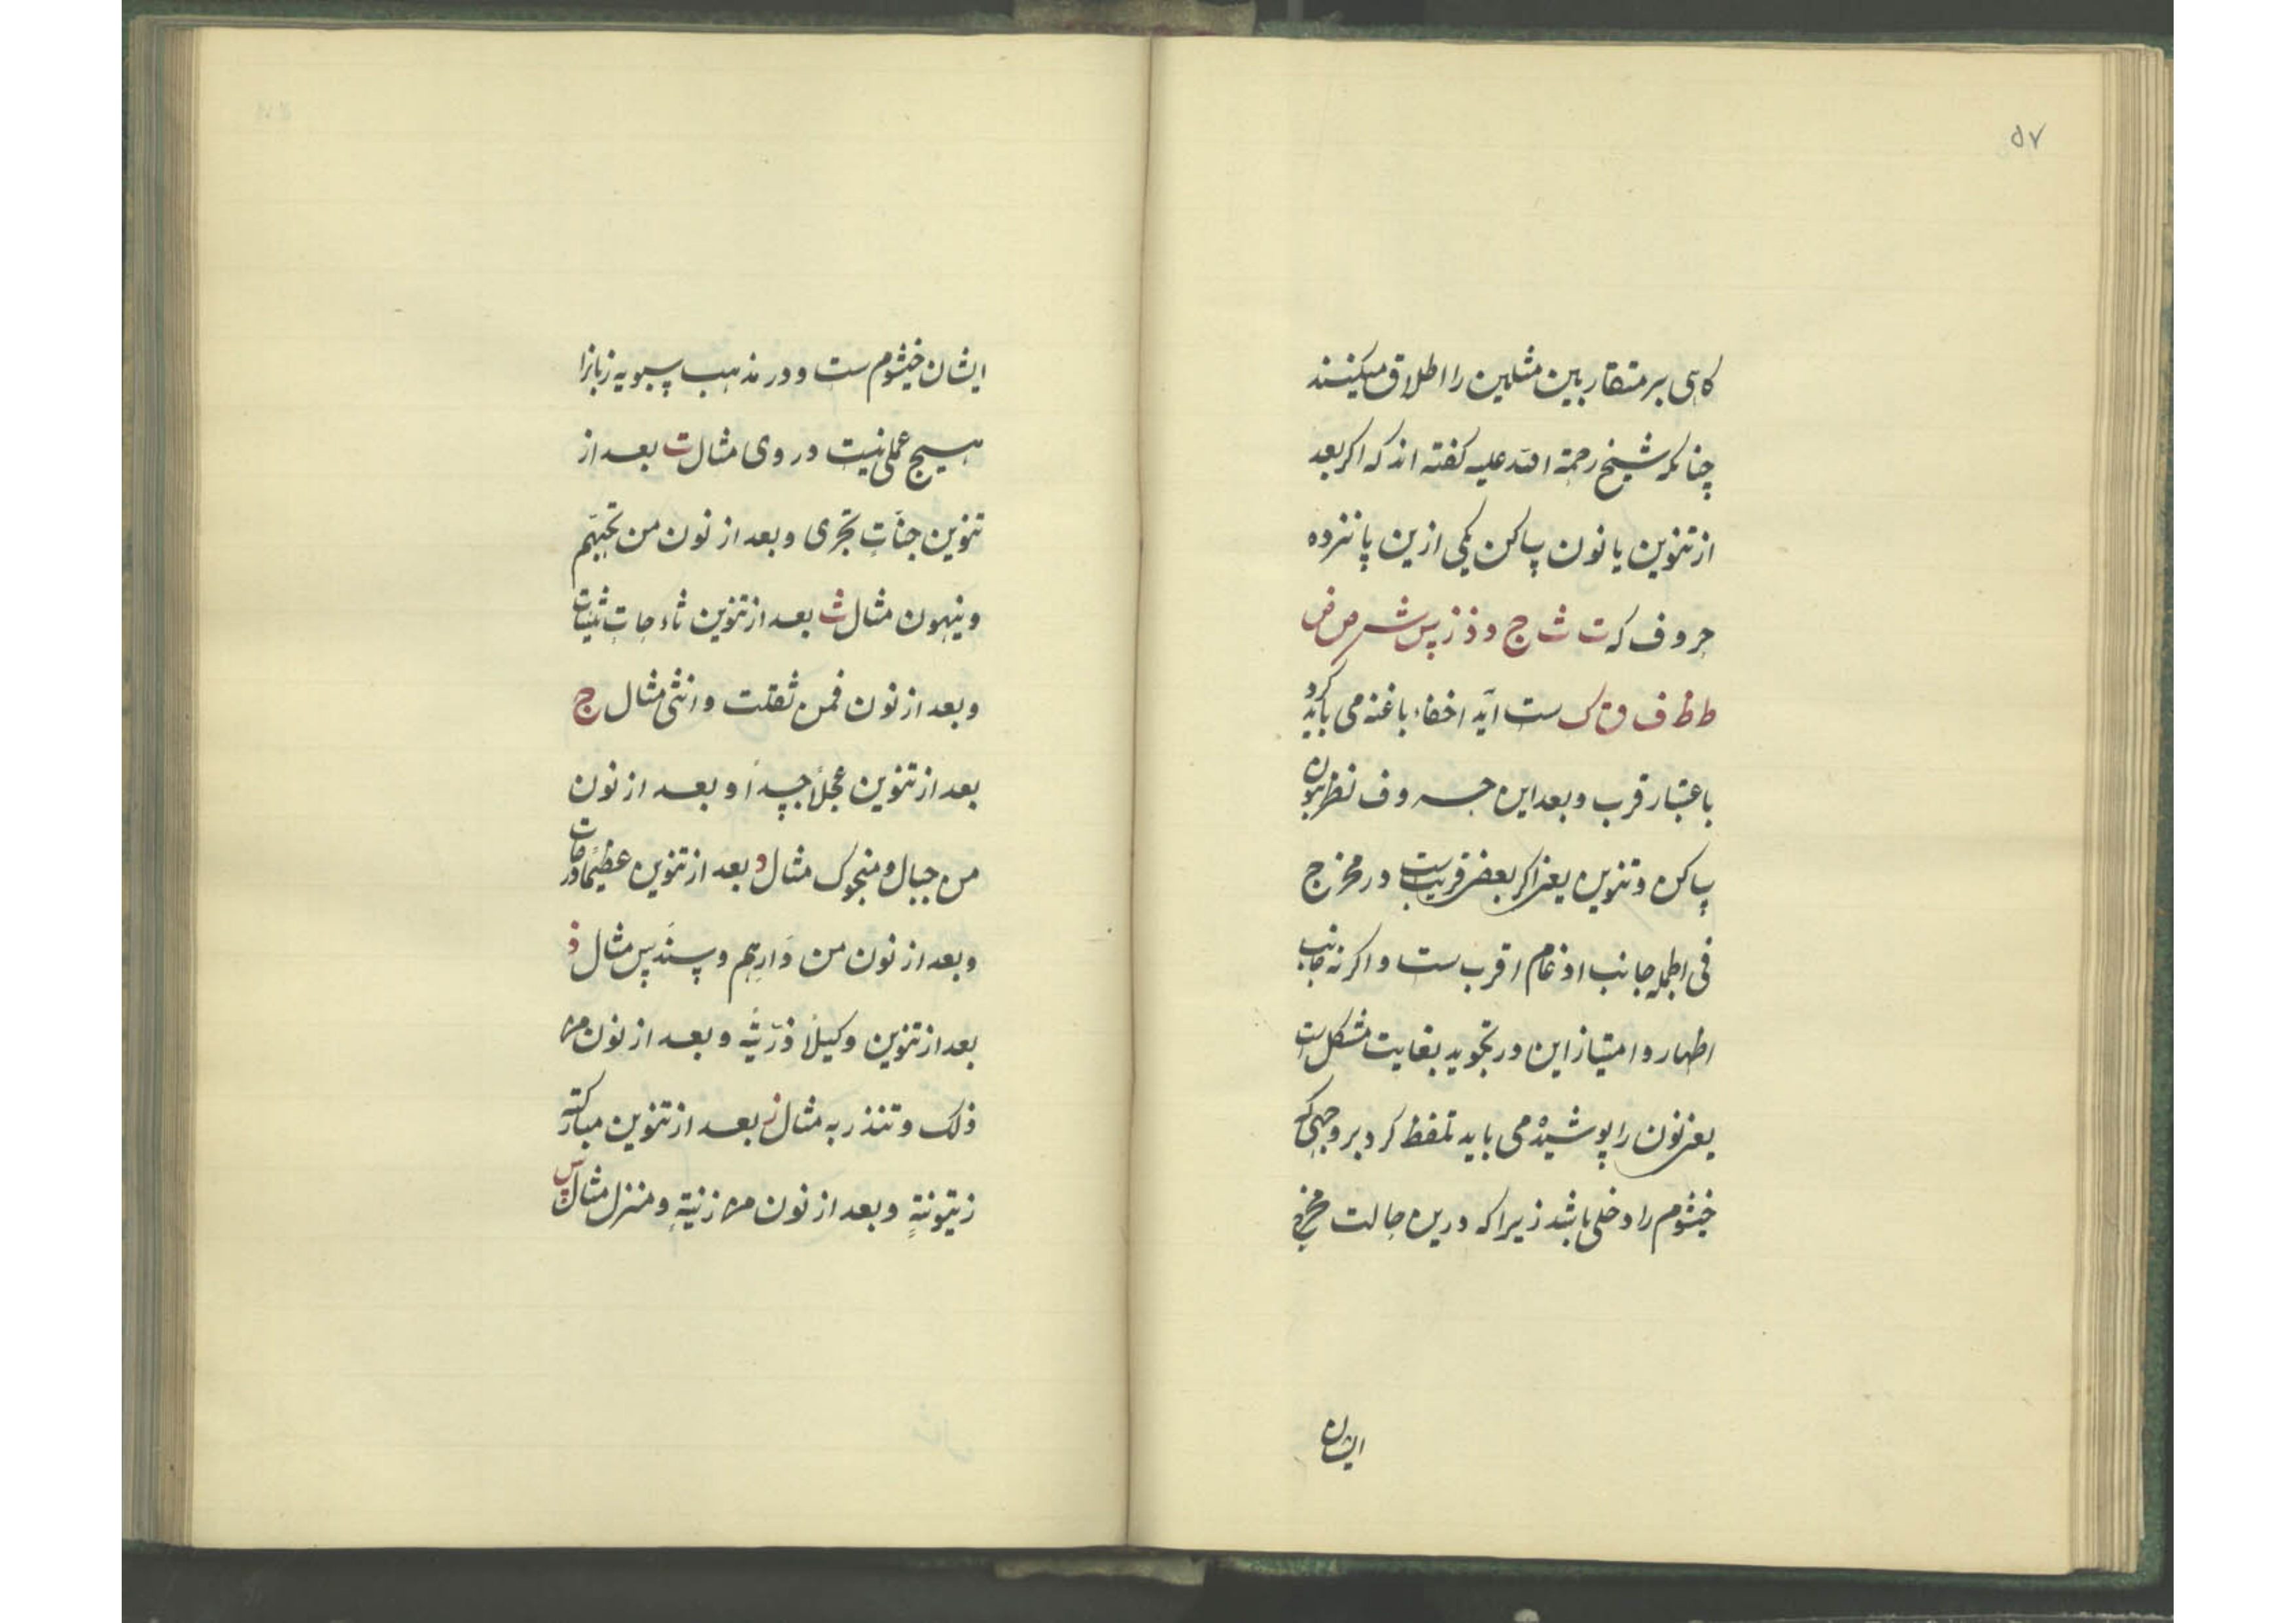 ۵۷
کاهی بر متقاربین مثلین را اطلاق میکنند
چنانکه شیخ رحمة الله علیه کفته اند که اکر بعد
از تنوین یا نون ساکن یکی ازین پانزده
حروف که ت ث ج د ذ ز س ش ص ض
ط ظ ف ق ک ست آید اخفاء با غنه می باید کرد
باعتبار قرب و بعد این حروف نظر بنون
ساکن و تنوین یعنی اکر بعضی قریب ست در مخرج
فی الجمله جانب ادغام اقرب ست و اکر نه جانب
اظهار و امتیاز این در تجوید بغایت مشکل است
یعنی نون را پوشیده می باید تلفظ کرد بر وجهی که
خیشوم را دخلی باشد زیرا که درین حالت مخرج
ایشان
ایشان خیشوم ست و در مذهب سیبویه زبانرا
هیچ عملی نیست در وی مثال ت بعد از
تنوین جناتٍ تجری و بعد از نون من تحتهم
و ینهون مثال ث بعد از تنوین ثیبات
و بعد از نون فمن ثقلت و انثی مثال ج
بعد از تنوین عجلاً جسداً و بعد از نون
من جبال و منجوک مثال د بعد از تنوین عظیمًا درجات
و بعد از نون من دَارِهم و سندس مثال ذ
بعد از تنوین وکیلًا ذرّیّةَ و بعد از نون من
ذلک و تنذر به مثال ز بعد از تنوین مبارکة
زیتونةٍ و بعد از نون من زینةِ و منزل مثال س